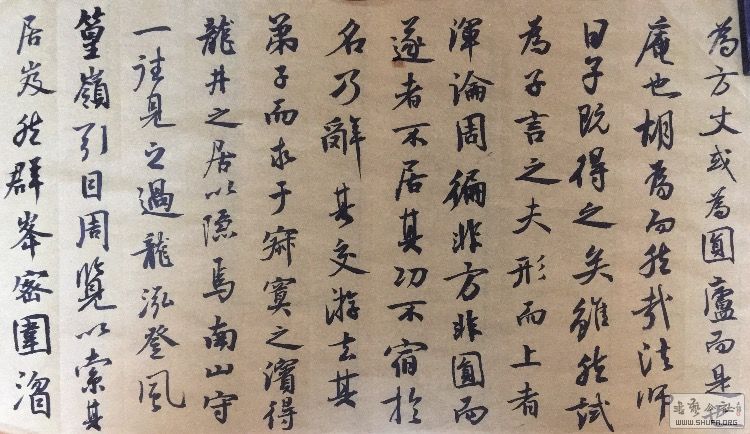 為方丈或為圓廬而是
庵也胡為而然哉法師
曰子既得之矣雖然試
為子言之夫形而上者
渾淪周徧非方非圓而
遂者不居其功不宿於
名乃辭其交游去其
弟子而求于寂寞之濱得
龍井之居以隱焉南山守
一往見之過龍泓登風
篁嶺引目周覽以索其
居岌然群峯密圍溜
WWW.SHUFA.ORG